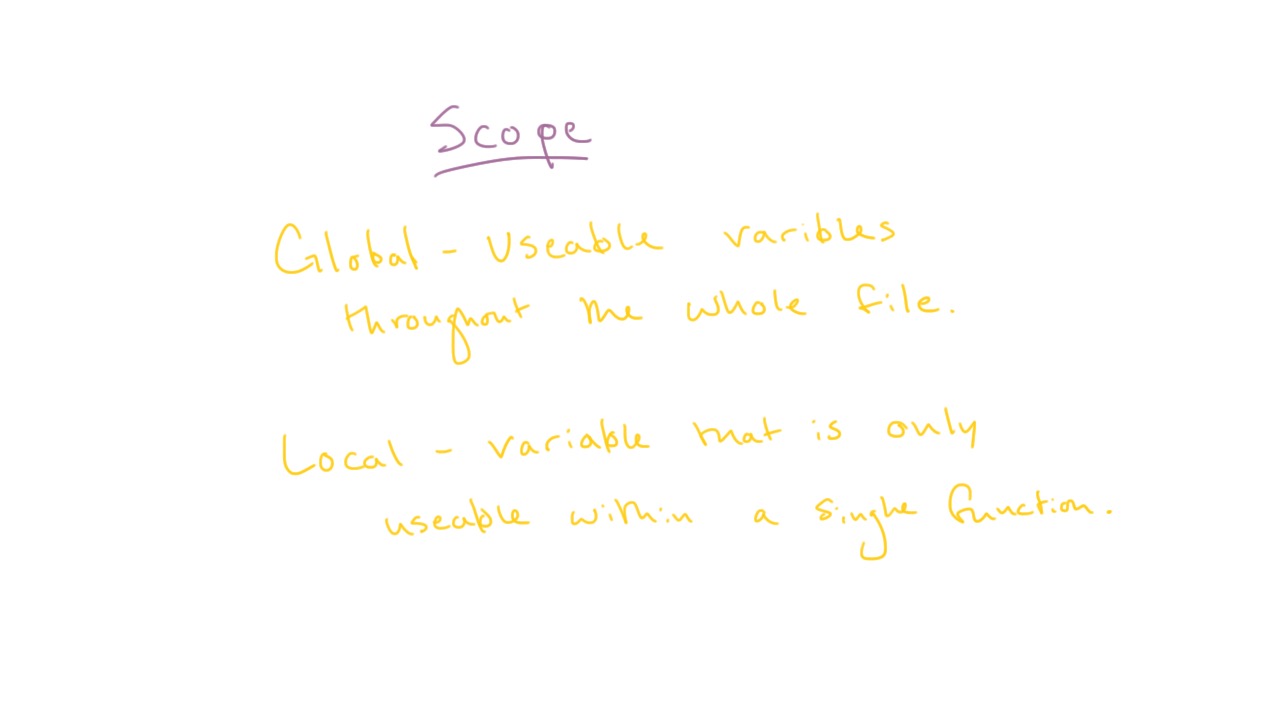 Scope
Global - Useable varibles
throughout the whole file.
Local - variable that is only
useable within a single function.